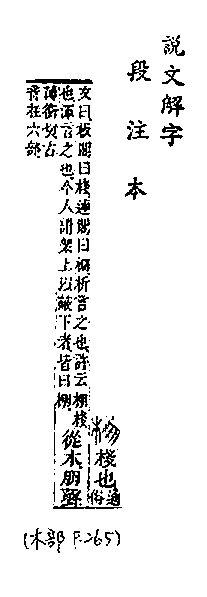 說文解字
段注本
棚棧也通俗
文曰板閣曰棧連閣曰棚析言之也許云棚棧
也渾言之也今人謂架上以蔽下者皆曰棚
從木朋聲
薄衡切古
音在六部
(木部 P.265)